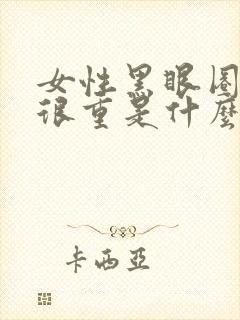 女性黑眼圈
很重是什麼
卡西亞